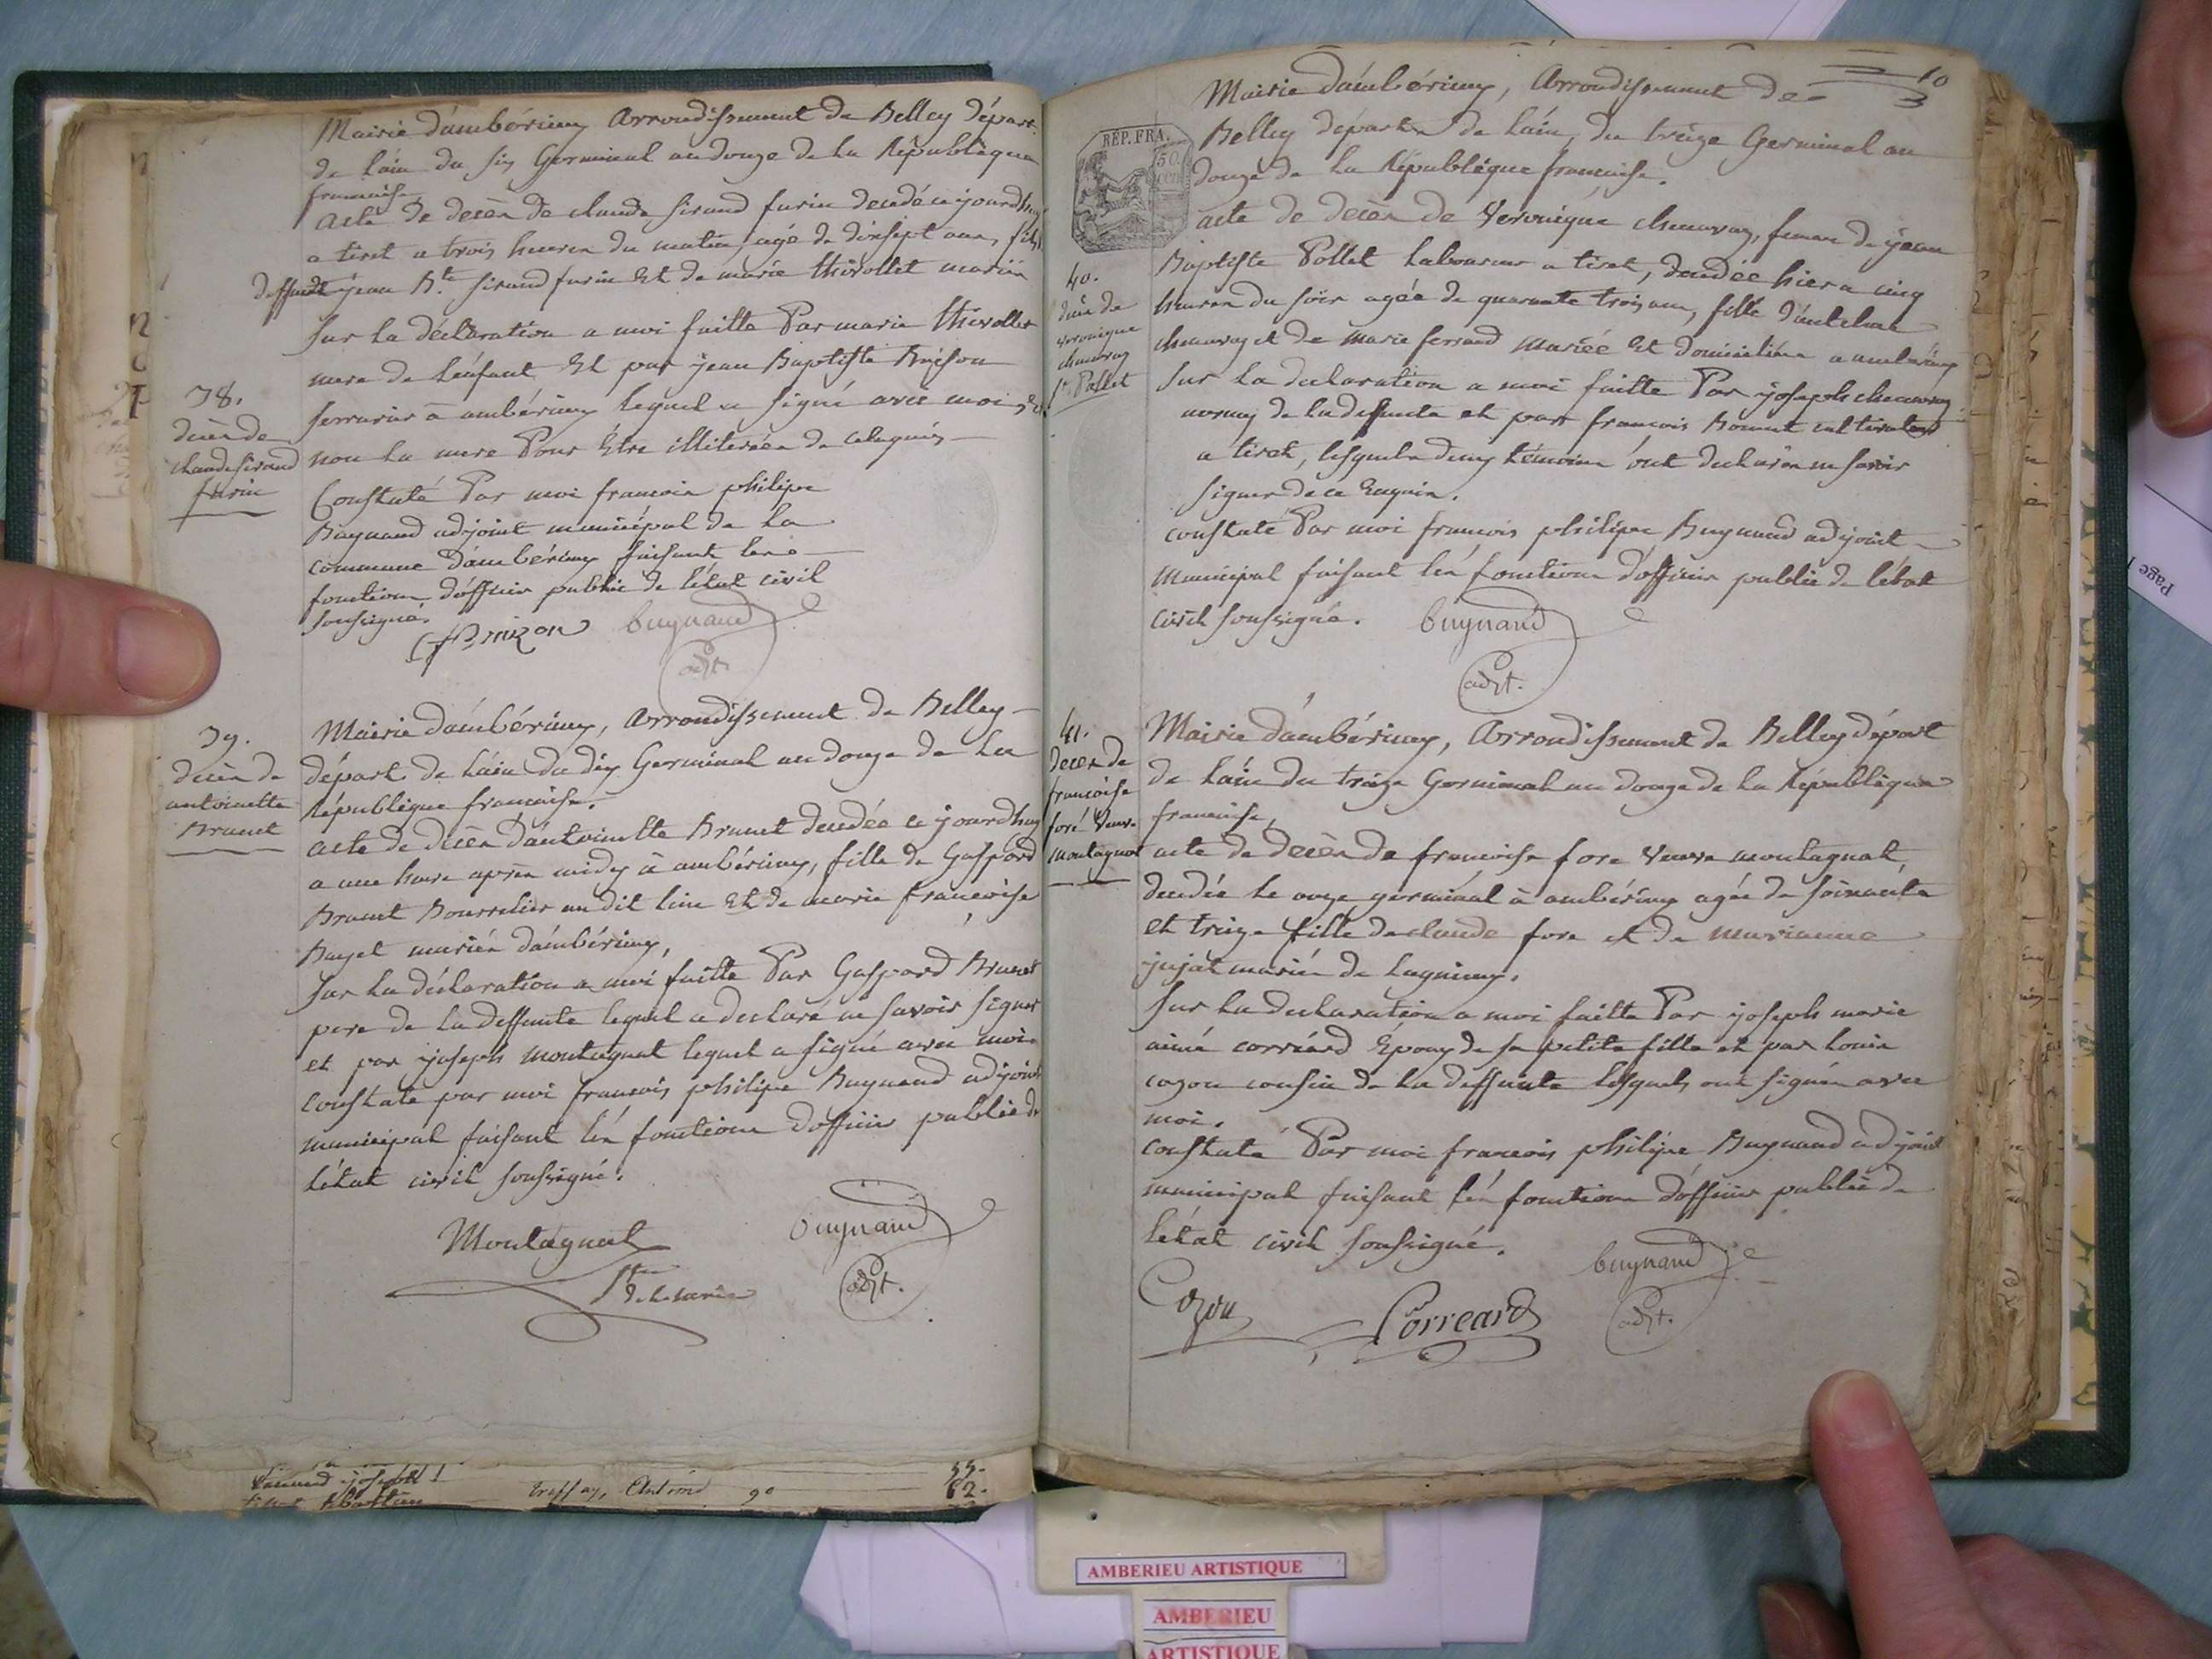 Mairie d'ambérieux Arrondissement de Belley départ.
de l'ain du six Germinal an douze de la République
francaise
acte de décès de claude sirand furin decedé ce jourdhuy
a tiret a trois heures du matin, agé de dixsept ans, fils
deffunt jean Bte sirand furin Et de marie thivollet mariés
Sur la déclaration a moi faitte Par marie thivollet
mere de l'enfant Et par jean Baptiste Brison
serrurier à ambérieux lequel a signé avec moi
non la mere Pour être illiterée de ce requis
Constaté Par moi francois philipe
Buynand adjoint municipal de la
commune d'ambérieux faisant les
fonctions d'officier public de l'état civil
soussigné.
Brizon buynand
adjt.
38.
décès de
claude sirand
furin
39.
décès de
antoinette
Brunet
Mairie d'ambérieux, Arrondissement de Belley
départ. de l'ain du dix Germinal an douze de la
République francaise.
acte de décès d'antoinette Brunet decedée ce jourdhuy
a une heure après midy à ambérieux, fille de Gaspard
Brunet Bourrelier au dit lieu Et de marie francoise
Buget mariés d'ambérieux,
Sur la déclaration a moi faitte Par Gaspard Brunet
pere de la deffunte lequel a declaré ne savoir signer
et par joseph montagnat lequel a signé avec moi
constaté par moi francois philipe Buynand adjoint
municipal faisant les fonctions d'officier public de
l'état civil soussigné.
Montagnat buynand
adjt.
treffay, Antoine 90 55.
62.
10
Mairie d'ambérieux, Arrondissement de
Belley départ. de l'ain, du treize Germinal an
douze de la République francaise.
REP. FRA.
50
cen
acte de décès de Veronique chauvoz, femme de jean
Baptiste Pollet laboureur a tiret, decedée hier a cinq
heures du soir agée de quarante trois ans, fille d'antelme
chauvoz et de marie ferrand mariés Et domiciliés a ambérieux
Sur la declaration a moi faitte Par joseph chauvoz
neveu de la deffunte et par francois Bonnet cultivateur
a tiret, lesquels deux témoins ont declarés ne savoir
signer de ce Enquis.
constaté Par moi francois philipe Buynand adjoint
municipal faisant les fonctions d'officier public de l'état
civil soussigné. buynand
adjt.
40.
décès de
veronique
chauvoz
fe Pollet
41.
deces de
francoise
foré veuve
montagnat
Mairie d'ambérieux, Arrondissement de Belley départ
de l'ain du treize Germinal an douze de la République
francaise,
acte de décès de francoise fore veuve montagnat,
decedée le onze germinal à ambérieux agée de soixante
et treize fille de claude fore et de marianne
jujat mariés de lagnieux.
Sur la declaration a moi faitte Par joseph marie
aimé corréard Epoux de sa petite fille et par louis
cozon cousin de la deffunte lesquels ont signés avec
moi.
constaté Par moi francois philipe Buynand adjoint
municipal faisant les fonctions d'officier public de
l'état civil soussigné.
buynand
Cozon Corréard adjt.
AMBERIEU ARTISTIQUE
AMBERIEU
ARTISTIQUE
Page